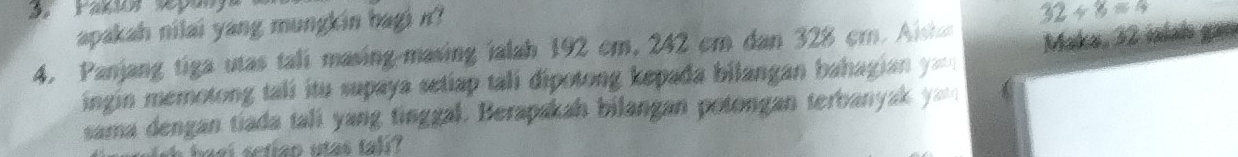 3. Faktor sepunya
apakah nilai yang mungkin bagi n?
32 ÷ 8 = 4
4. Panjang tiga utas tali masing-masing ialah 192 cm, 242 cm dan 328 cm.
Maka, 32 ialah
ingin memotong tali itu supaya setiap tali dipotong kepada bilangan bahagian
sama dengan tiada tali yang tinggal. Berapakah bilangan potongan terbanyak
bagi setiap utas tali?